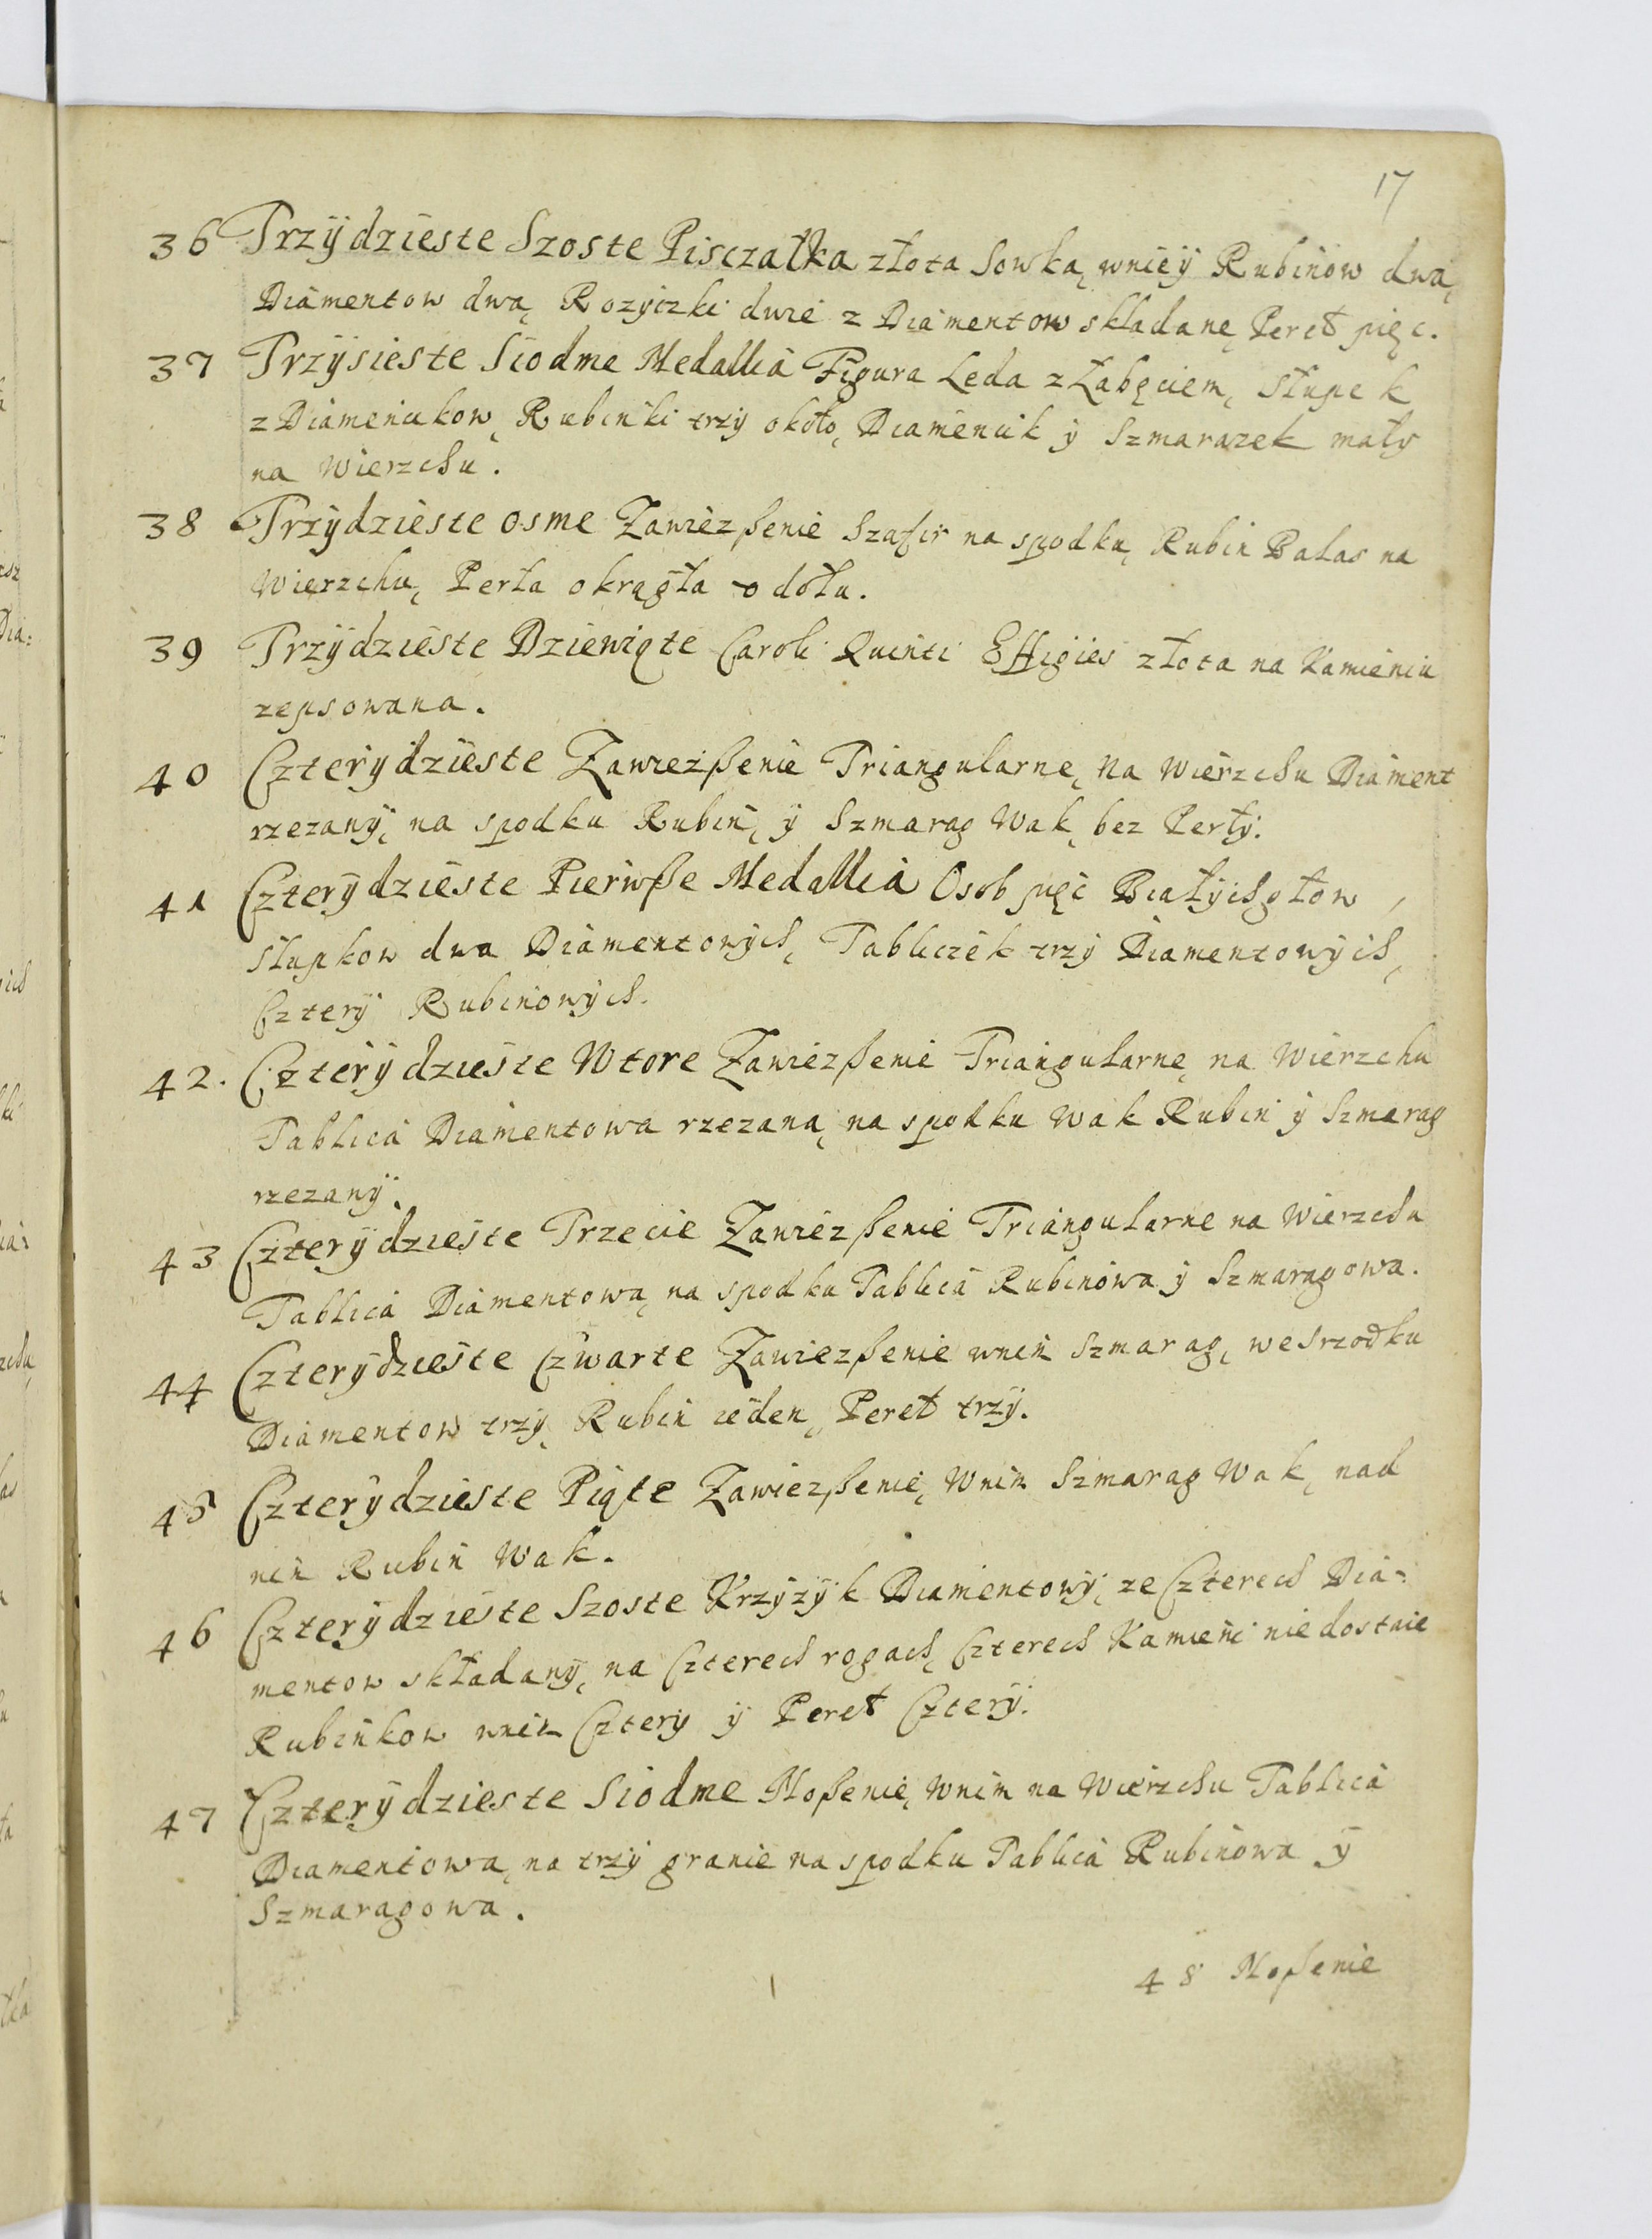 17
36 Trzÿdzieste Szoste Pisczałka złota Sowka, wnieÿ Rubinow dwa,
Diamentow dwa, Rozyczki dwie z Diamentow składane, Pereł pięc.
37 Trzÿsieste Siodme Medallia Figura Leda z Łabęciem, Słupek
z Diamencikow, Rubinki trzy około, Diamencik ÿ Szmarazek mały
na Wierzchu.
38 Trzÿdzieste osme Zawiezßenie Szafir na spodku, Rubin Balas na
Wierzchu, Perła okrągła o dołu.
39 Trzÿdzieste Dziewiąte Caroli Quinti Effigies złota na Kamieniu
zepsowana.
40 Czterÿdzieste Zawiezßenie Triangularne, na Wierzchu Diament
rzezanÿ, na spodku Rubin, ÿ Szmarag Wak, bez Perłÿ.
41 Czterÿdzieste Pierwße Medallia Osob pięć Białÿchgłow,
Słupkow dwa Diamentowÿch, Tabliczek trzÿ Diamentowÿch,
Czterÿ Rubinowÿch.
42. Czterÿdzieste Wtore Zawiezßenie Triangularne, na Wierzchu
Tablica Diamentowa rzezana, na spodku Wak Rubin ÿ Szmarag
rzezanÿ.
43 Czterÿdzieste Trzecie Zawiezßenie Triangularne na Wierzchu
Tablica Diamentowa, na spodku Tablica Rubinowa ÿ Szmaragowa.
44 Czterÿdzieste Czwarte Zawiezßenie wnin Szmarag, we Srzodku
Diamentow trzÿ, Rubin ieden, Pereł trzÿ.
45 Czterÿdzieste Piąte Zawiezßenie, Wnin Szmarag Wak, nad
nin Rubin Wak.
46 Czterÿdzieste Szoste Krzyzÿk Diamentowÿ, ze Czterech Dia=
mentow składanÿ, na Czterech rogach, Czterech Kamieni niedostaie
Rubinkow wnin Cztery ÿ Pereł Czterÿ.
47 Czterÿdzieste Siodme Noßenie, Wnim na Wierzchu Tablica
Diamentowa, na trzÿ granie na spodku Tablica Rubinowa ÿ
Szmaragowa.
48 Noßenie